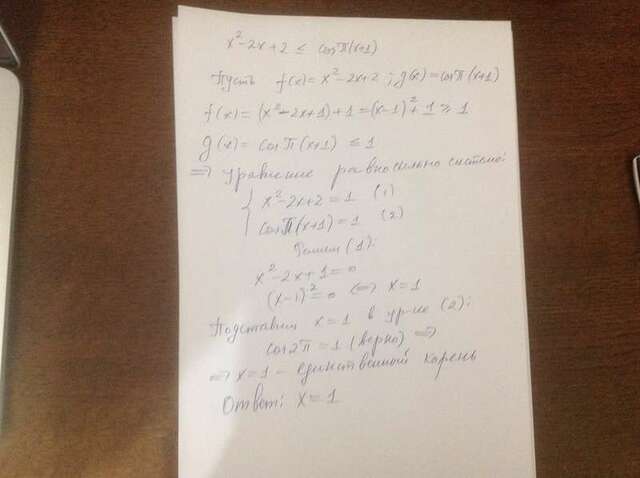 x² - 2x + 2 ≤ cos π(x+1)
Пусть f(x) = x² - 2x + 2 ; g(x) = cos π(x+1)
f(x) = (x² - 2x + 1) + 1 = (x-1)² + 1 ≥ 1
g(x) = cos π(x+1) ≤ 1
=> Уравнение равносильно системе:
{ x² - 2x + 2 = 1 (1)
cos π(x+1) = 1 (2)
Решим (1):
x² - 2x + 1 = 0
(x-1)² = 0 <=> x = 1
Подставим x = 1 в ур-ие (2):
cos 2π = 1 (верно) =>
=> x = 1 - единственный корень
Ответ: x = 1